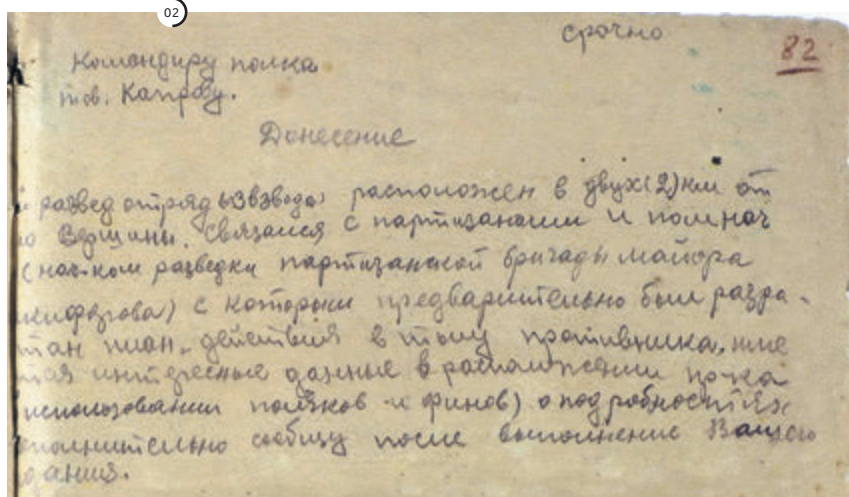 02
срочно
82
Командиру полка
тов. Капрову.
Донесение
развед отряд взвода расположен в двух (2) км от
Вершины. Связался с партизанами и пом нач
(нач-ком разведки партизанской бригады майора
с которым предварительно был разра-
тан план, действия в тылу противника, име
интересные данные в расположении
использовании поляков и финов) о подробностях
сообщу после выполнение Вашего
дания.